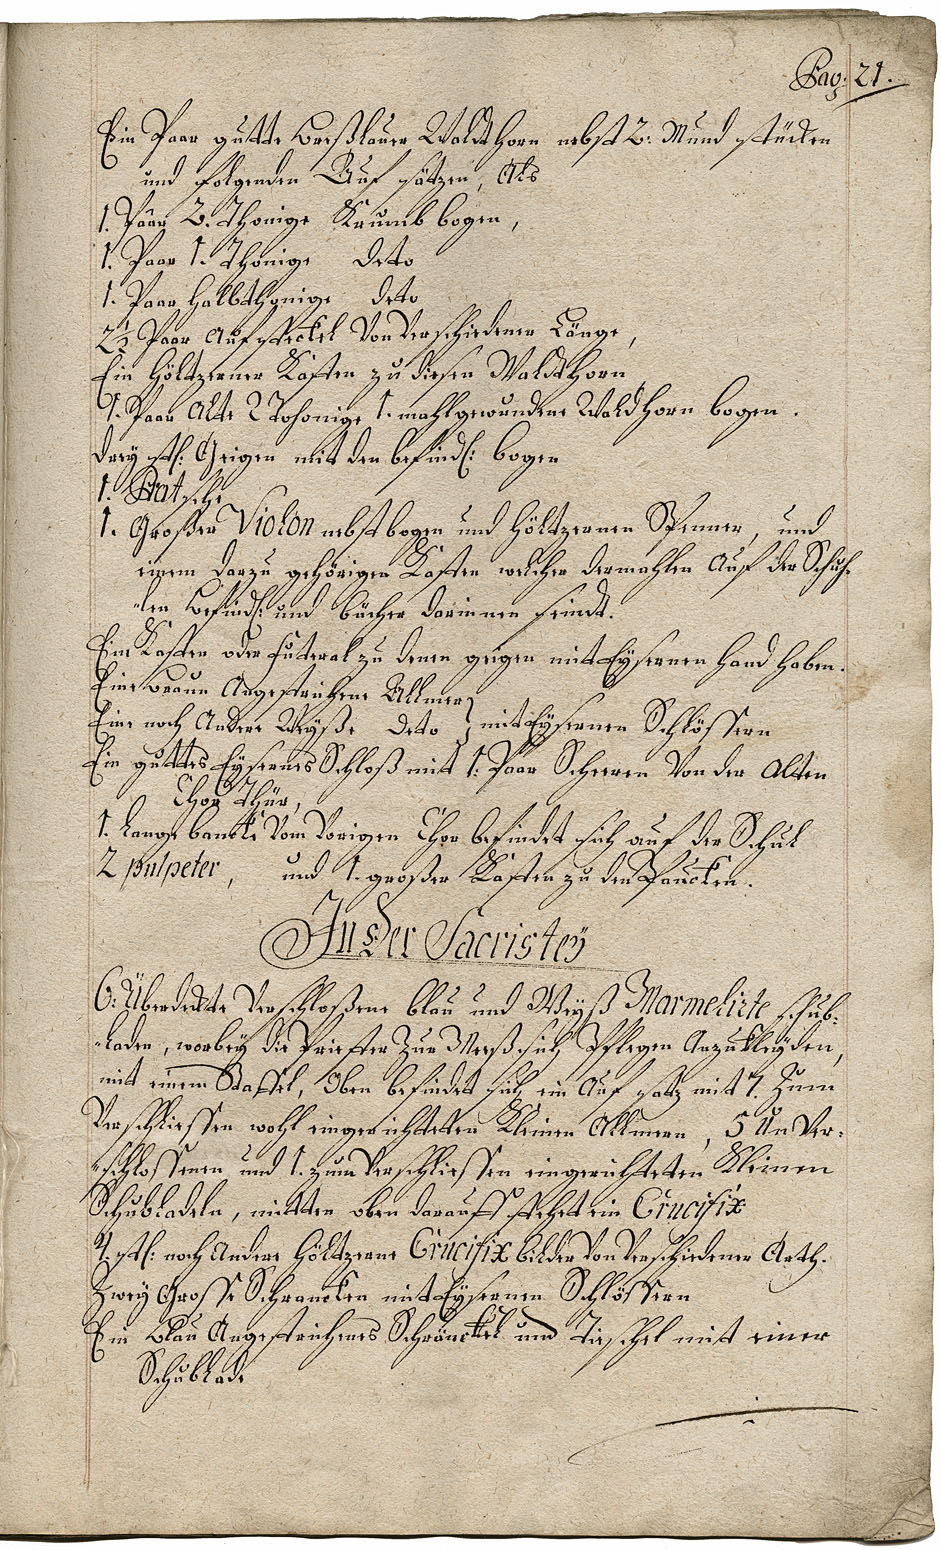 Pag: 21.
Ein Paar gutte Breßlauer Waldt Horn nebst 2: Mund stücken
und folgenden Auf sätzen, Als
1. Paar 2. Thonige Krumb bogen,
1. Paar 1. Thonige deto
1. Paar halbthonige deto
2½ Paar Aufsteckel von verschiedener Länge,
Ein Höltzerner Kasten zu diesen Waldt Horn
1. Paar Alte 2 Thonige 1. mahl gewundene Wald Horn bogen.
Drey stk: Geigen mit den befindl: bogen
1. Bratsche
1. Großer Violon nebst bogen und Höltzernen Spenner, und
einem darzu gehörigen Kasten welcher dermahlen Auf der Schuh-
"len befindl: und bücher darinnen seindt.
Ein Kasten oder futeral zu denen geigen mit Eysernen Hand haben.
Eine braun Angestrichene Allmer
Eine noch Andere Weyße deto } mit Eysernen Schlössern
Ein guttes Eysernes Schloß mit 1. Paar Scheeren Von der Alten
Chor Thür,
1. lange bancke Vom Vorigen Chor befindet sich auf der Schul
2 pulpeter, und 1. großer Kasten zu den Paucken.
In der Sacristey
6: Überdeckte Verschloßene blau und Weyß Marmelirte schub-
"laden, worbey die Priester Zur Meß sich Pflegen Anzukleyden,
mit einem Staffel, Oben befindet sich ein Auf satz mit 7. Zum
Verschliessen wohl eingerichteten Kleinen Allmern, 5 Un Ver-
"schlossenen und 1. zum Verschliessen eingerichteten Kleinen
Schubladeln, mitten oben darauff stehet ein Crucifix
4. stk: noch Andere Höltzerne Crucifix bilder Von Verschiedener Arth.
Zwey Grosse Schrancken mit Eysernen Schlössern
Ein blau Angestrichenes Schränckel und Tieschel mit einer
Schublade